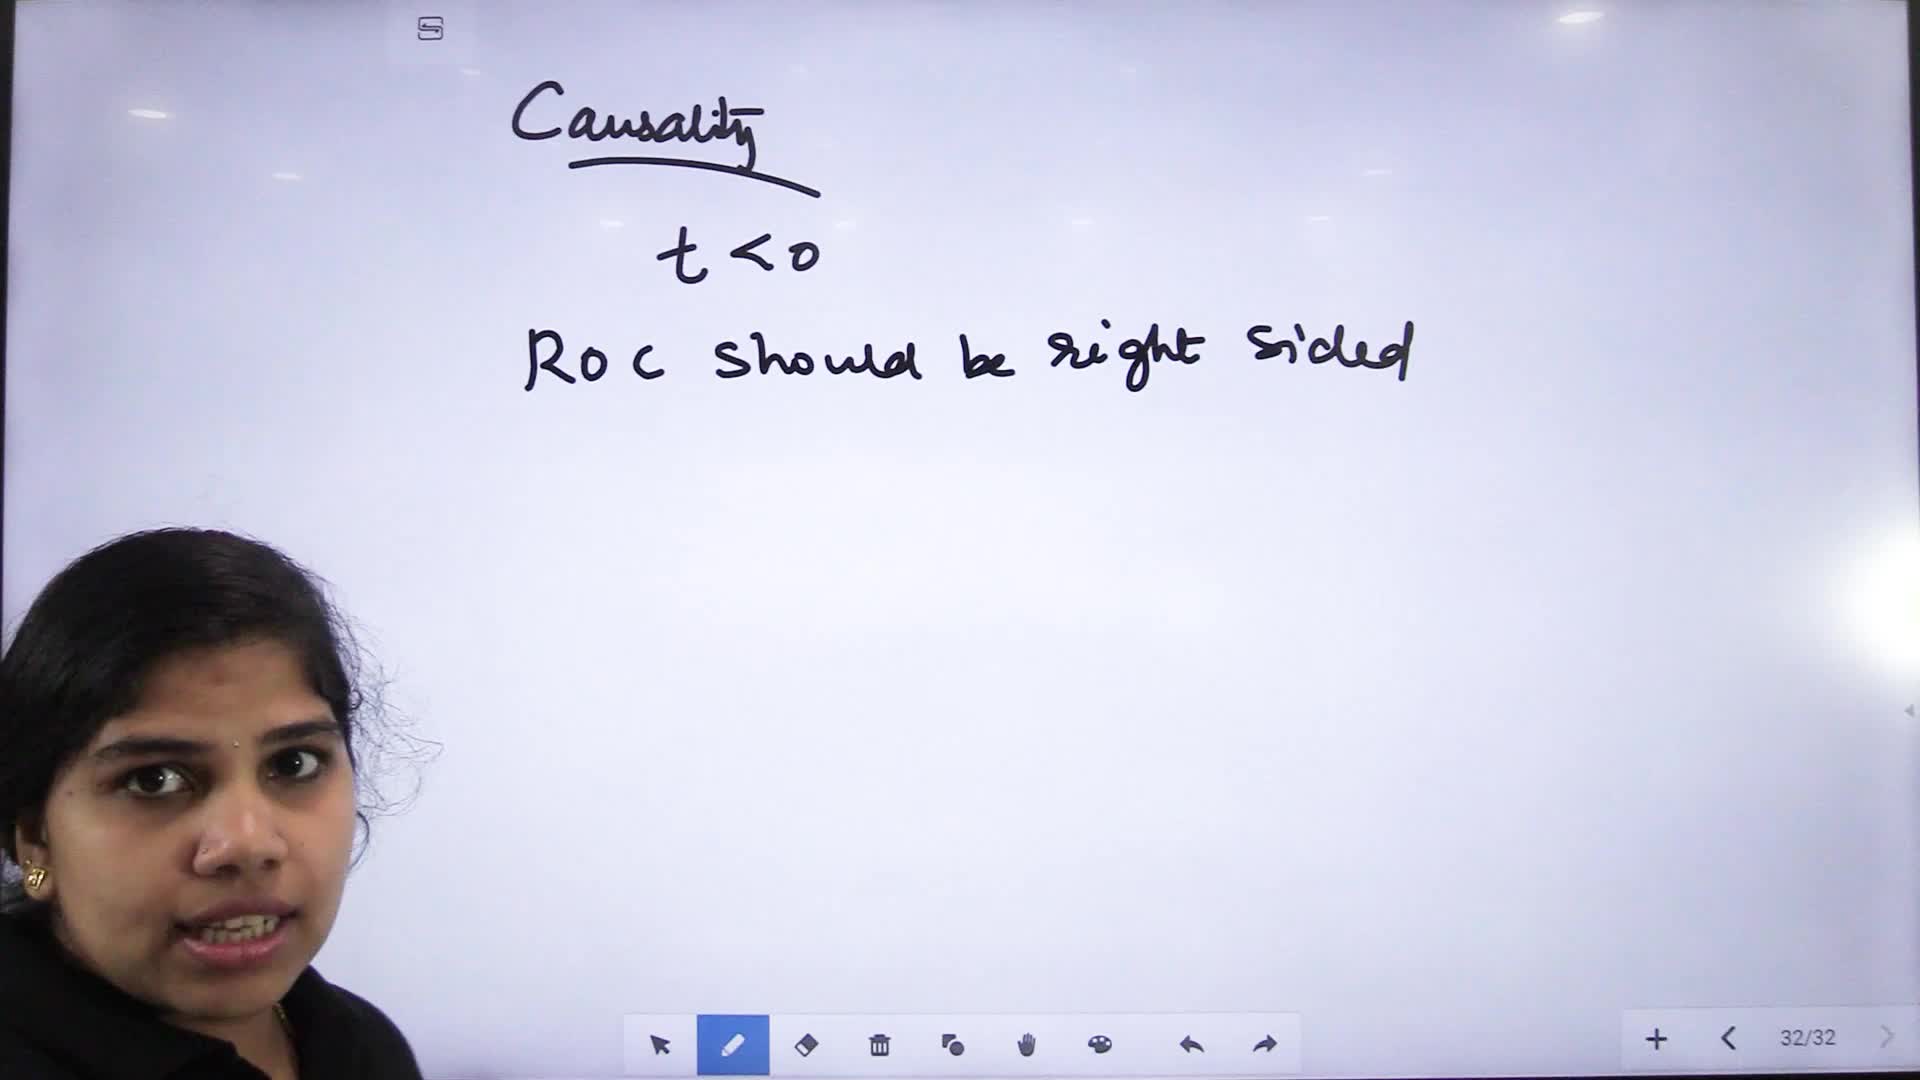 Causality
t < 0
ROC should be right sided
32/32